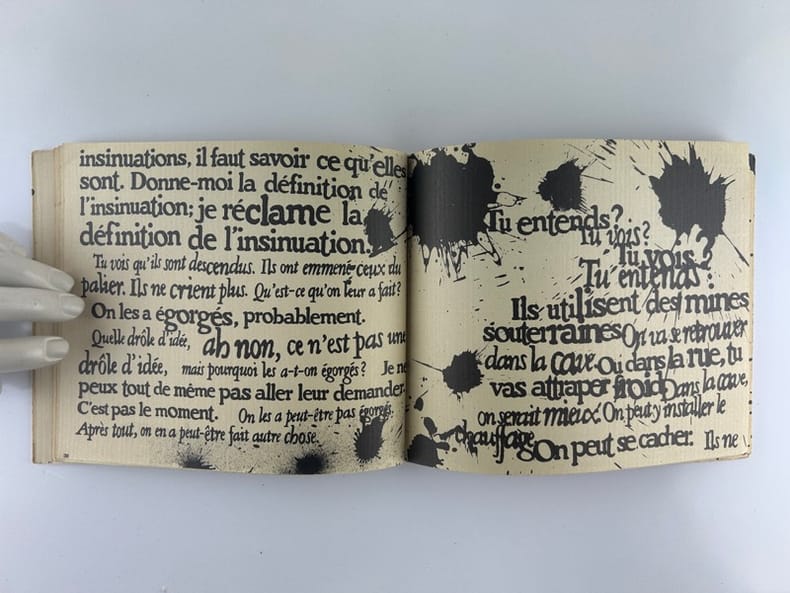 insinuations, il faut savoir ce qu'elles
sont. Donne-moi la définition de
l'insinuation; je réclame la
définition de l'insinuation.
Tu vois qu'ils sont descendus. Ils ont emmené ceux du
palier. Ils ne crient plus. Qu'est-ce qu'on leur a fait?
On les a égorgés, probablement.
Quelle drôle d'idée, ah non, ce n'est pas une
drôle d'idée, mais pourquoi les a-t-on égorgés? Je ne
peux tout de même pas aller leur demander.
C'est pas le moment. On les a peut-être pas égorgés.
Après tout, on en a peut-être fait autre chose.
Tu entends?
Tu vois?
Tu vois?
Tu entends?
Ils utilisent des mines
souterraines On va se retrouver
dans la cave. Ou dans la rue, tu
vas attraper froid. Dans la cave,
on serait mieux. On peut y installer le
chauffage. On peut se cacher. Ils ne